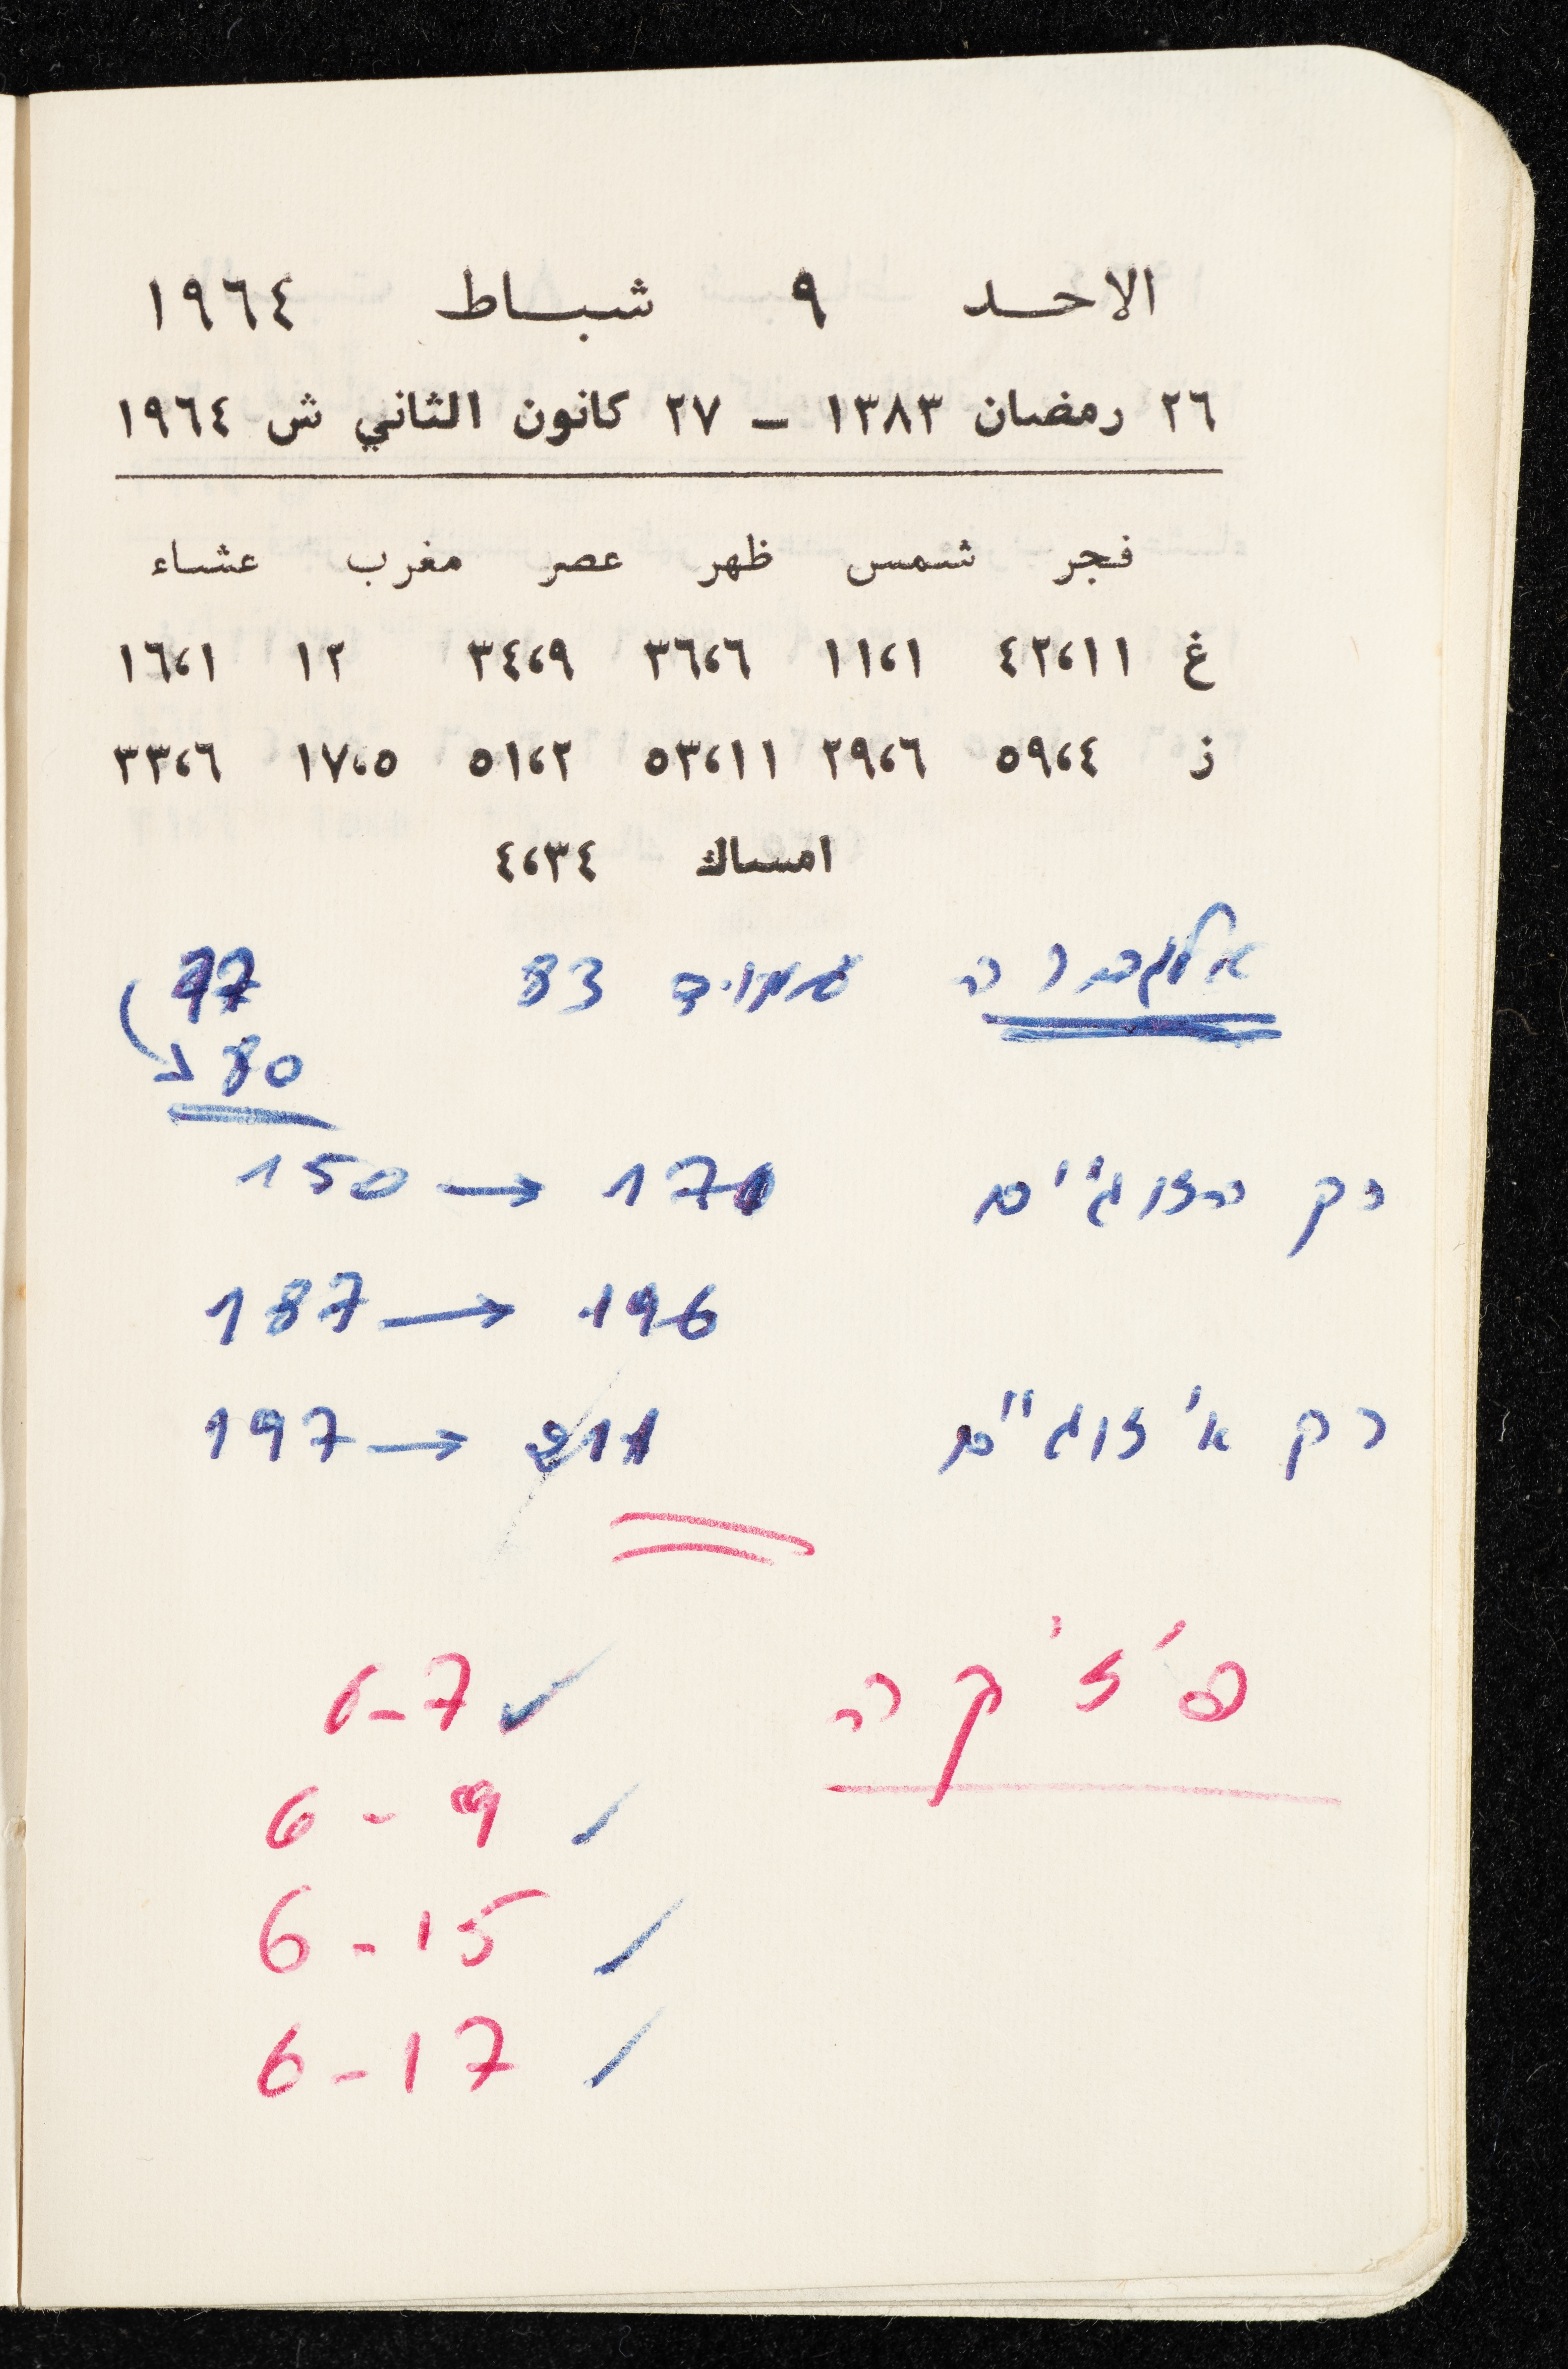 الاحـد ٩ شبـاط ١٩٦٤
٢٦ رمضان ١٣٨٣ – ٢٧ كانون الثاني ش ١٩٦٤
فجر شمس ظهر عصر مغرب عشاء
غ ٤٢،١١ ١١،١ ٣٦،٦ ٣٤،٩ ١٢ ١٦،١
ز ٥٩،٤ ٢٩،٦ ٥٣،١١ ٥١،٢ ١٧،٥ ٣٣،٦
امساك ٤،٣٤
אלגברה עמוד 83 77
80
רק הזוגיים 150 → 171
187 → 196
רק אי זוגיים 197 → 211
פיזיקה 6-7 ✓
6 - 9 /
6 - 15 /
6 - 17 /